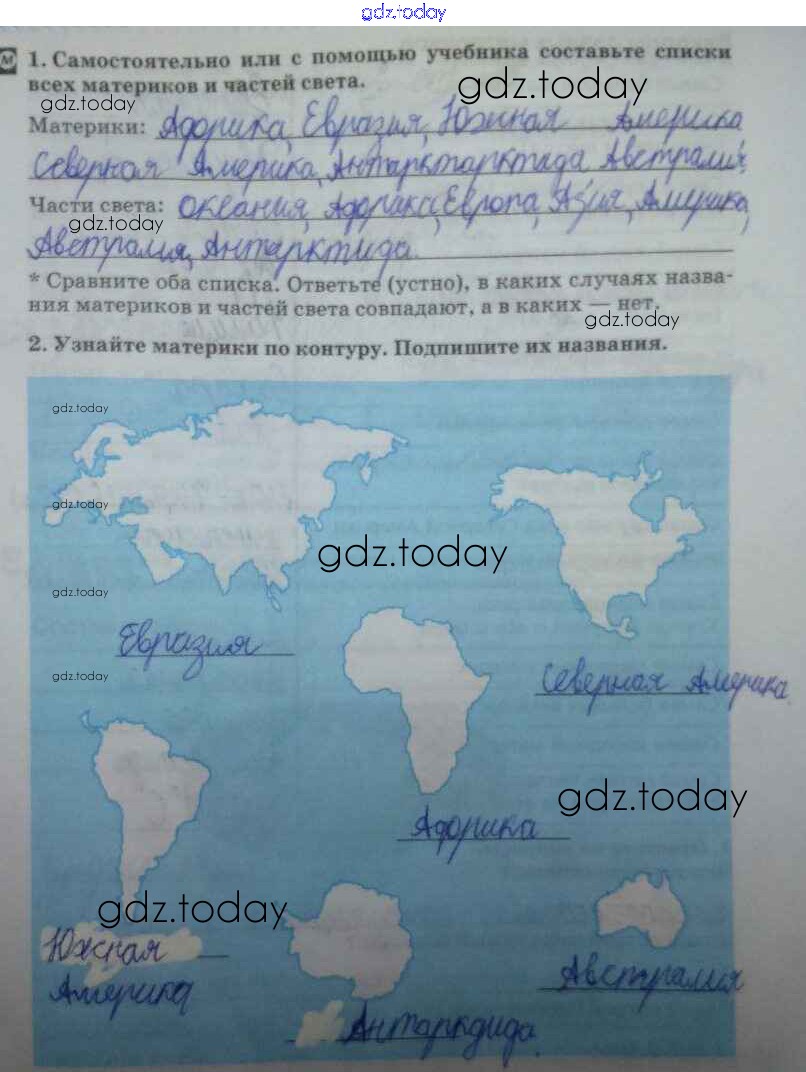 gdz.today
1. Самостоятельно или с помощью учебника составьте списки
всех материков и частей света.
gdz.today
gdz.today
Материки: Африка, Евразия, Южная Америка
Северная Америка, Антарктарктида Австралия.
Части света: Океания, Африка, Европа, Азия, Америка,
gdz.today
Австралия, Антарктида.
* Сравните оба списка. Ответьте (устно), в каких случаях назва-
ния материков и частей света совпадают, а в каких — нет.
gdz.today
2. Узнайте материки по контуру. Подпишите их названия.
gdz.today
gdz.today
gdz.today
gdz.today
Евразия
gdz.today
Северная Америка.
gdz.today
Африка
gdz.today
Южная
Америка
Австралия
Антаркдида.